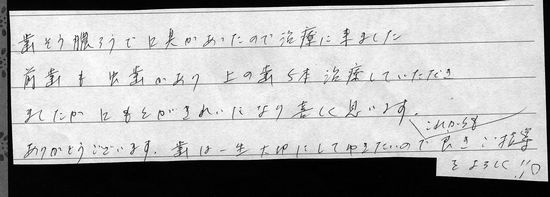 歯そう膿ろうで口臭があったので治療に来ました
前歯も虫歯があり上の歯5本治療していただき
ましたが口もとがきれいになり喜しく思います。
ありがとうございます。歯は一生大切にしてゆきたいので これからも 良き ご指導
をよろしく!!